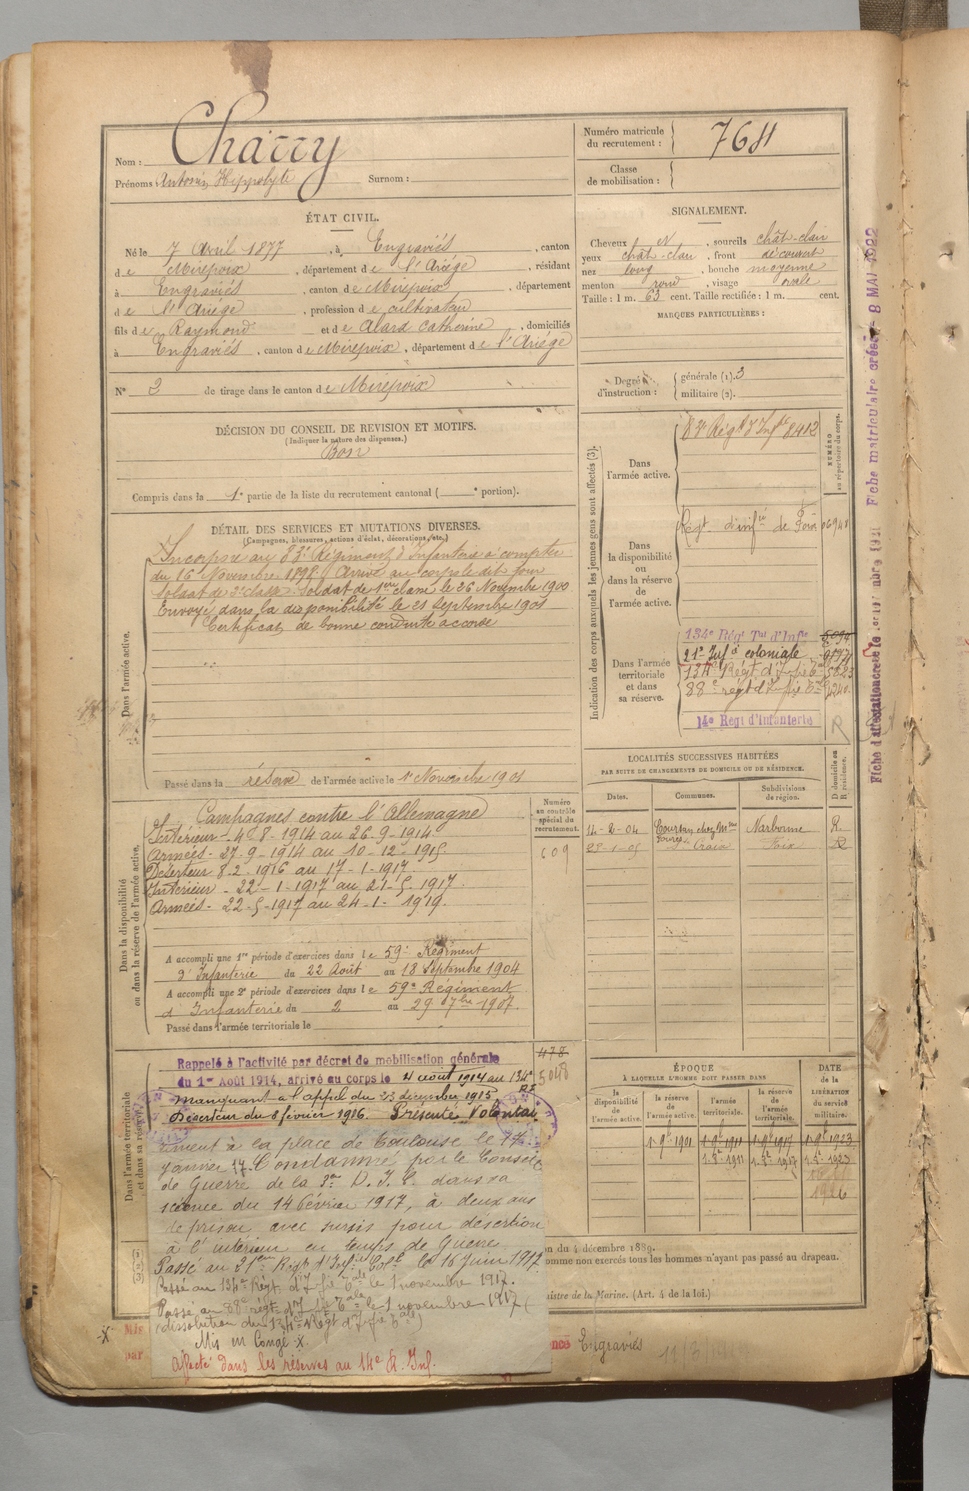 Nom : Charry
Prénoms : Antonin Hippolyte Surnom :
Numéro matricule du recrutement : 768
Classe de mobilisation :
ÉTAT CIVIL.
Né le 7 Avril 1877, à Engraviès, canton
de Mirepoix, département de l'Ariège, résidant
à Engraviès, canton de Mirepoix, département
de l'Ariège, profession de cultivateur
fils de Raymond et de Alard Catherine, domiciliés
à Engraviès, canton de Mirepoix, département de l'Ariège
N° 2 de tirage dans le canton de Mirepoix
SIGNALEMENT.
Cheveux N, sourcils chât-clair
yeux chât-clair, front découvert
nez long, bouche moyenne
menton rond, visage ovale
Taille : 1 m. 63 cent. Taille rectifiée : 1 m. cent.
MARQUES PARTICULIÈRES :
Degré d'instruction : générale (1). 3
militaire (2).
DÉCISION DU CONSEIL DE REVISION ET MOTIFS.
(Indiquer la nature des dispenses.)
Bon
Compris dans la 1e partie de la liste du recrutement cantonal ( portion).
DÉTAIL DES SERVICES ET MUTATIONS DIVERSES.
(Campagnes, blessures, actions d'éclat, décorations, etc.)
Dans l'armée active.
Incorporé au 83e Régiment d'Infanterie à compter
du 16 Novembre 1898. Arrivé au corps le dit jour
soldat de 2e classe. Soldat de 1ère classe le 26 Novembre 1900
Envoyé dans la disponibilité le 21 Septembre 1901
Certificat de bonne conduite accordé
Passé dans la réserve de l'armée active le 1er Novembre 1901
Indication des corps auxquels les jeunes gens sont affectés (3).
NUMÉRO au répertoire du corps.
Dans l'armée active.
83e Régt d'Infie 8412
Dans la disponibilité ou dans la réserve de l'armée active.
Régt d'infie de Foix 06948
Dans l'armée territoriale et dans sa réserve.
134e Régt Tal d'Infie
21e Infie coloniale
134e Régt d'Infie Tale
88e régt d'Infie Tale
14e Regt d'Infanterie
R
LOCALITÉS SUCCESSIVES HABITÉES
PAR SUITE DE CHANGEMENTS DE DOMICILE OU DE RÉSIDENCE.
Dates. Communes. Subdivisions de région. D domicile ou R résidence.
14-2-04 Coursan chez Mme Narbonne R.
Foix R
Dans la disponibilité ou dans la réserve de l'armée active.
Numéro au contrôle spécial du recrutement.
609
Campagnes contre l'Allemagne
Intérieur - 4-8-1914 au 26-9-1914
Armées - 27-9-1914 au 10-12-1915
Déserteur 8-2-1916 au 17-1-1917
Intérieur - 22-1-1917 au 21-5-1917
Armées - 22-5-1917 au 24-1-1919.
A accompli une 1re période d'exercices dans le 59e Régiment
d'Infanterie du 22 Août au 18 Septembre 1904
A accompli une 2e période d'exercices dans le 59e Régiment
d'Infanterie du 2 au 29 7bre 1907.
Passé dans l'armée territoriale le
Dans l'armée territoriale et dans sa réserve.
478
5048
Rappelé à l'activité par décret de mobilisation générale
du 1er Août 1914, arrivé au corps le 4 août 1914 au 134e RI
Manquant à l'appel du 23 décembre 1915
Déserteur du 8 février 1916. Présenté Volontai
rement à la place de Toulouse le 17
Janvier 17. Condamné par le Conseil
de Guerre de la 3e D.I.C. dans sa
séance du 14 Février 1917, à deux ans
de prison avec sursis pour désertion
à l'intérieur en temps de Guerre
Passé au 21ème Régt d'Infie Cole le 16 juin 1917
Passé au 134e Régt d'Infie Tale le 1 novembre 1917.
Passé au 88e régt d'Infie Tale le 1 novembre 1917 (
dissolution du 134e Régt d'Infie Tale)
Mis en Congé x
Affecté dans les réserves au 14e R. Inf.
ÉPOQUE
À LAQUELLE L'HOMME DOIT PASSER DANS
la disponibilité de l'armée active. la réserve de l'armée active. l'armée territoriale. la réserve de l'armée territoriale.
DATE de la LIBÉRATION du service militaire.
on du 4 décembre 1889.
omme non exercés tous les hommes n'ayant pas passé au drapeau.
nistre de la Marine. (Art. 4 de la loi.)
nce Engraviès